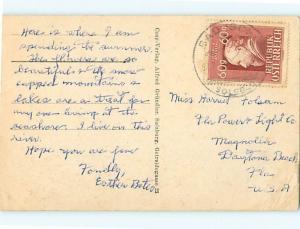 Here is where I am
spending the summer.
The flowers are so
beautiful & the snow
capped mountains &
lakes are a treat for
my one living at the
seashore. I live on this
river.
Hope you are fine
Fondly,
Esther
Cosy-Verlag, Alfred Gründler, Salzburg, Getreidegasse 22
60g
60g
REPUBLIK
ÖSTERREICH
Miss Harriet Folsom
Fla Power & Light Co
Magnolia
Daytona Beach
Fla
U.S.A